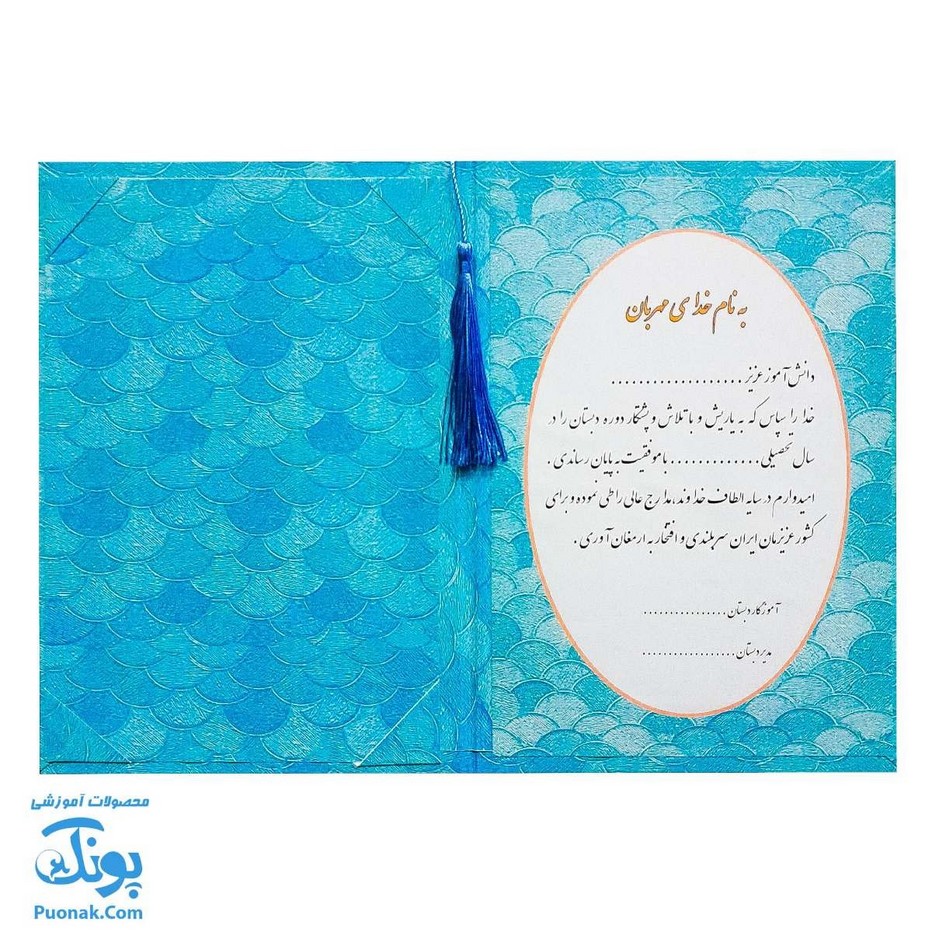 به نام خدای مهربان
دانش آموز عزیز ...................
خدا را سپاس که به یاریش و با تلاش و پشتکار دوره دبستان را در
سال تحصیلی ............. با موفقیت به پایان رساندی .
امیدوارم در سایه الطاف خداوند، مدارج عالی را طی نموده و برای
کشور عزیزمان ایران سربلندی و افتخار به ارمغان آوری .
آموزگار دبستان ................
مدیر دبستان ..................
محصولات آموزشی
پونک
Puonak.Com